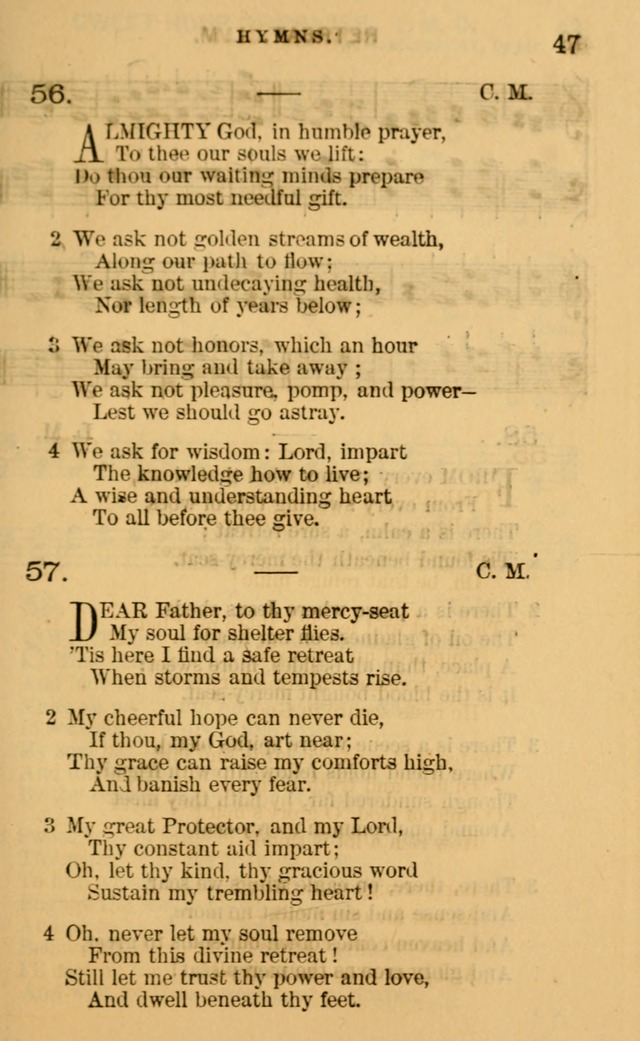 HYMNS. 47
56. C. M.
ALMIGHTY God, in humble prayer,
To thee our souls we lift:
Do thou our waiting minds prepare
For thy most needful gift.
2 We ask not golden streams of wealth,
Along our path to flow;
We ask not undecaying health,
Nor length of years below;
3 We ask not honors, which an hour
May bring and take away ;
We ask not pleasure, pomp, and power—
Lest we should go astray.
4 We ask for wisdom: Lord, impart
The knowledge how to live;
A wise and understanding heart
To all before thee give.
57. C. M.
DEAR Father, to thy mercy-seat
My soul for shelter flies.
'Tis here I find a safe retreat
When storms and tempests rise.
2 My cheerful hope can never die,
If thou, my God, art near;
Thy grace can raise my comforts high,
And banish every fear.
3 My great Protector, and my Lord,
Thy constant aid impart;
Oh, let thy kind, thy gracious word
Sustain my trembling heart!
4 Oh, never let my soul remove
From this divine retreat!
Still let me trust thy power and love,
And dwell beneath thy feet.